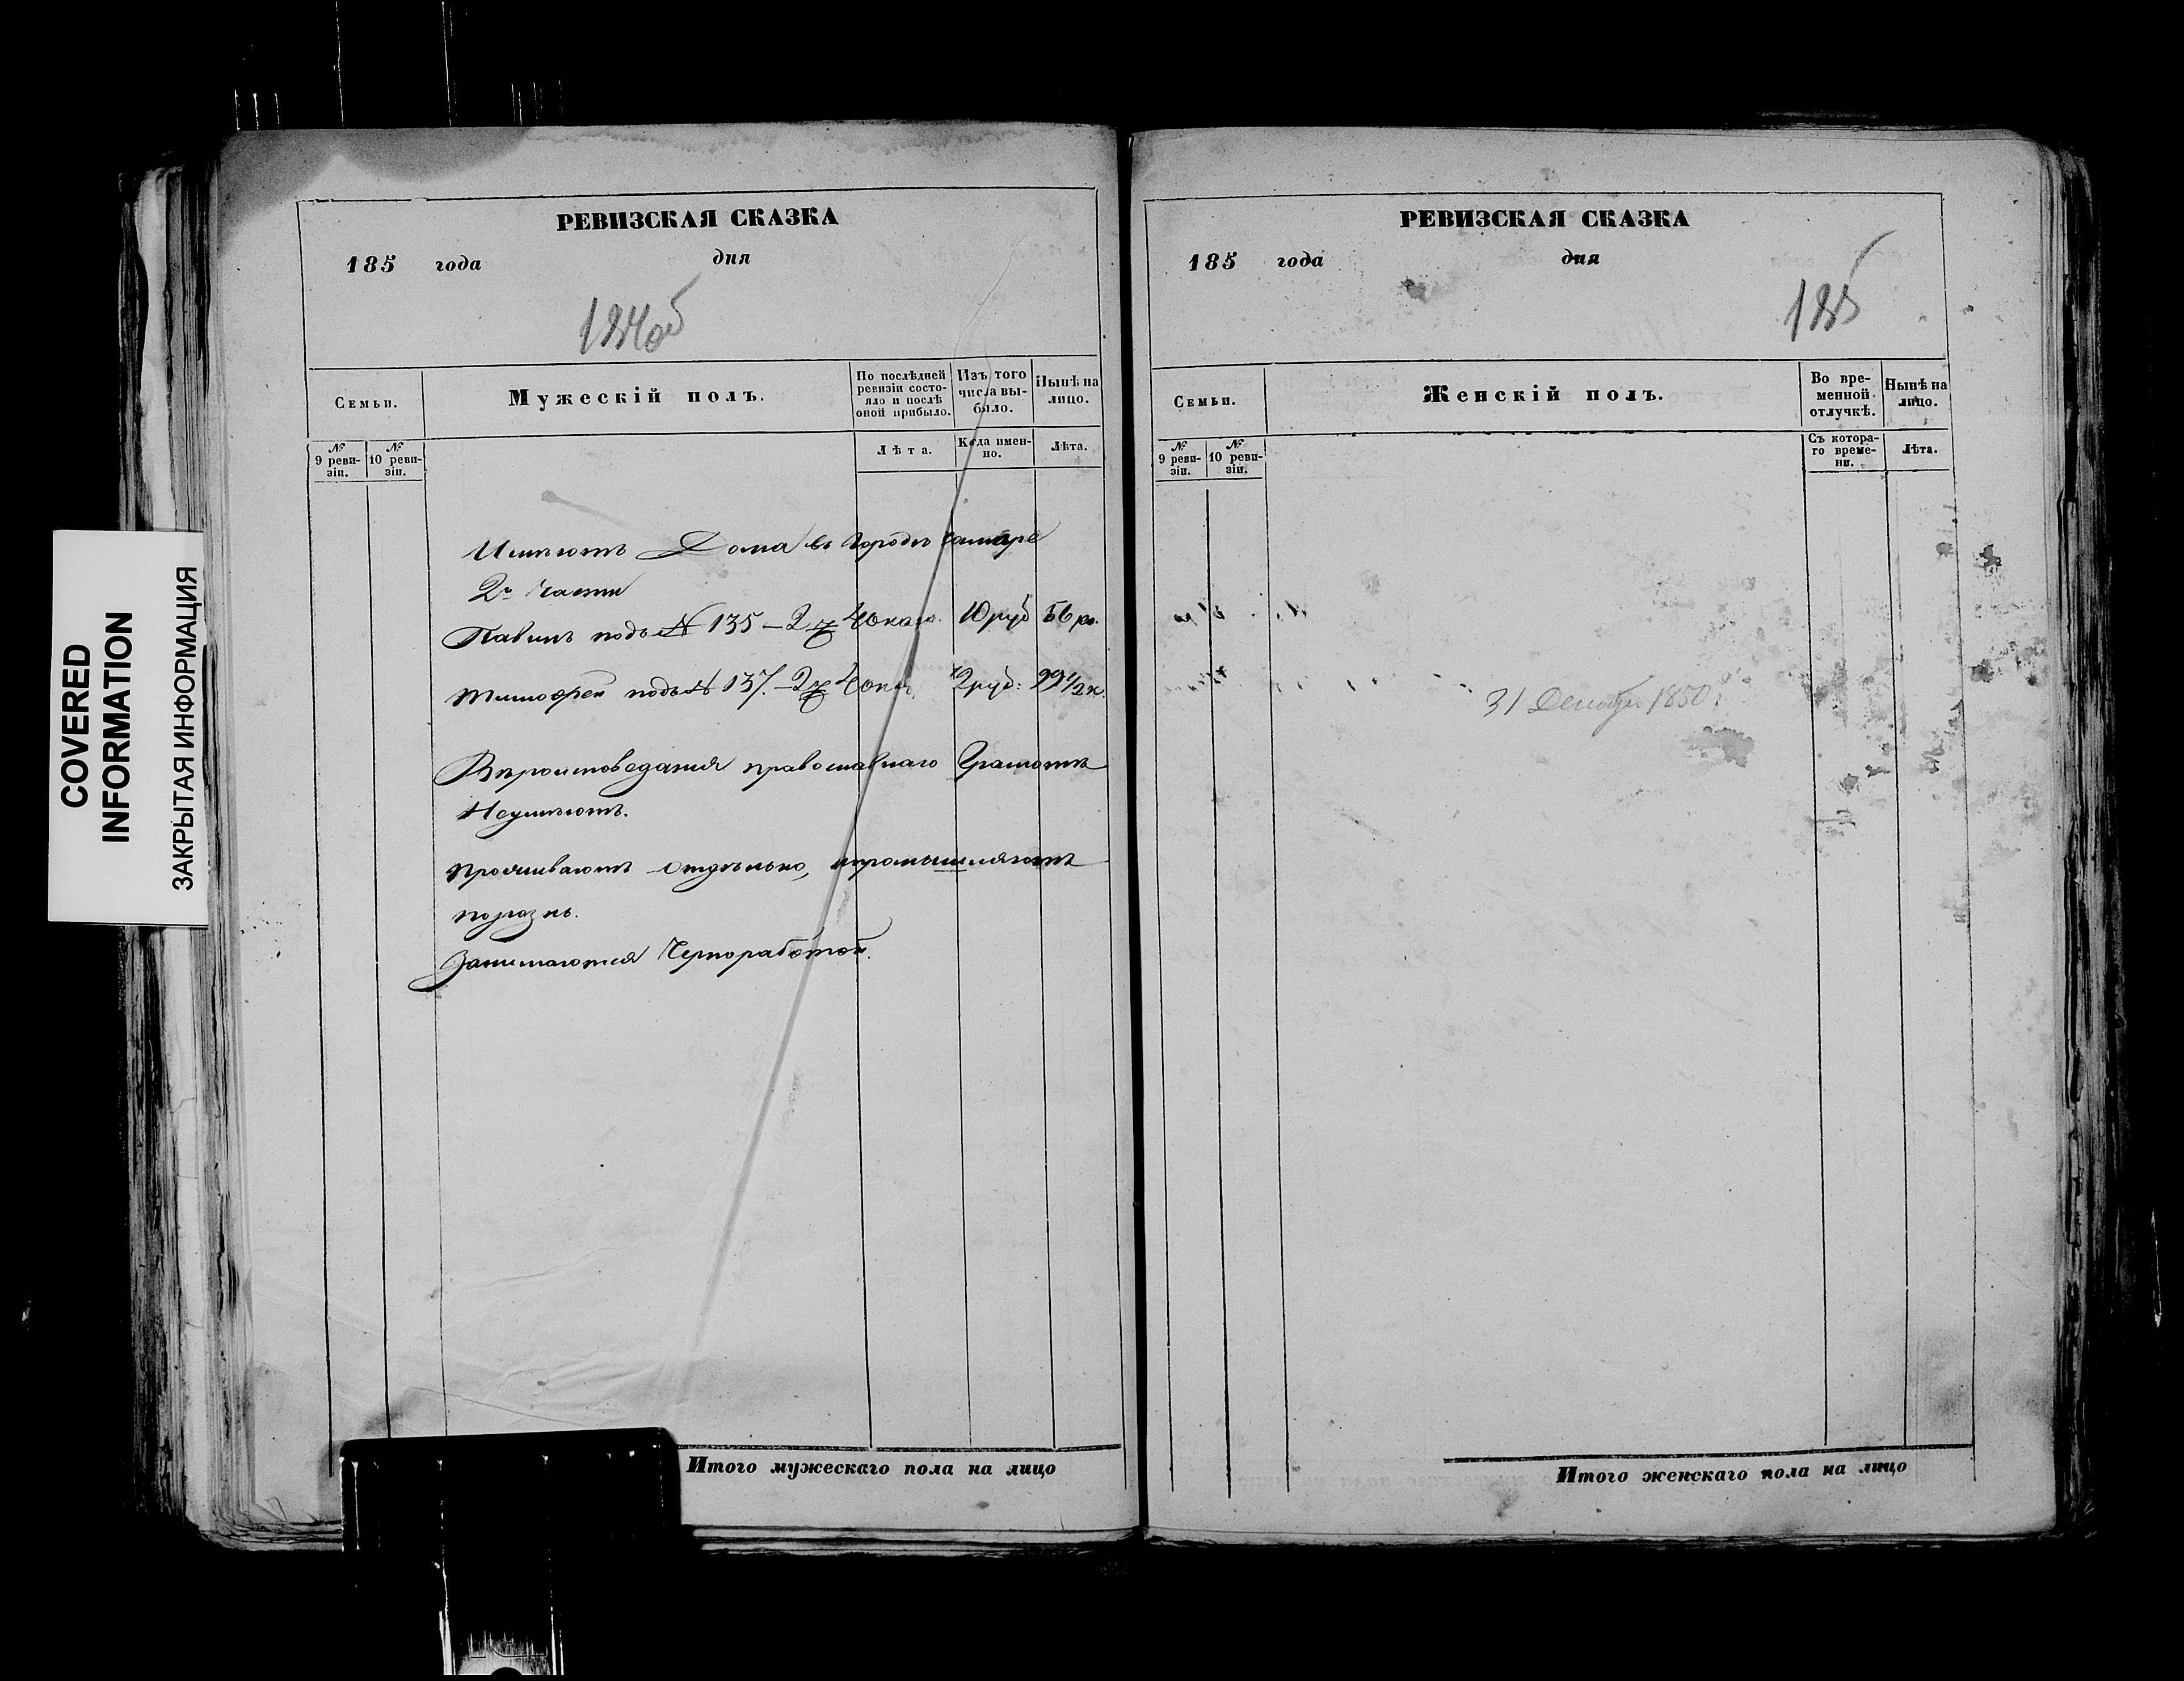 COVERED
INFORMATION
ЗАКРЫТАЯ ИНФОРМАЦИЯ
РЕВИЗСКАЯ СКАЗКА
185 года дня
184об
Семьи.
Мужескій полъ.
По послѣдней ревизіи состояло и послѣ оной прибыло.
Изъ того числа выбыло.
Нынѣ на лицо.
№ 9 ревизіи.
№ 10 ревизіи.
Лѣта.
Когда именно.
Лѣта.
Имѣютъ Дома въ Городѣ Самаре
2й Части
Павилъ подъ № 135 — 2 40 10 руб 56
Тимофей подъ № 137. — 2 2 руб: 99 1/2 к.
Вѣроисповедания православнаго Грамотѣ
Неумѣютъ.
Проживаютъ отдѣльно, промышляютъ
порознь.
Занимаются Черноработой.
Итого мужескаго пола на лицо
РЕВИЗСКАЯ СКАЗКА
185 года дня
185
Семьи.
Женскій полъ.
Во временной отлучкѣ.
Нынѣ на лицо.
№ 9 ревизіи.
№ 10 ревизіи.
Съ котораго времени.
Лѣта.
31 Декабря 1850
Итого женскаго пола на лицо